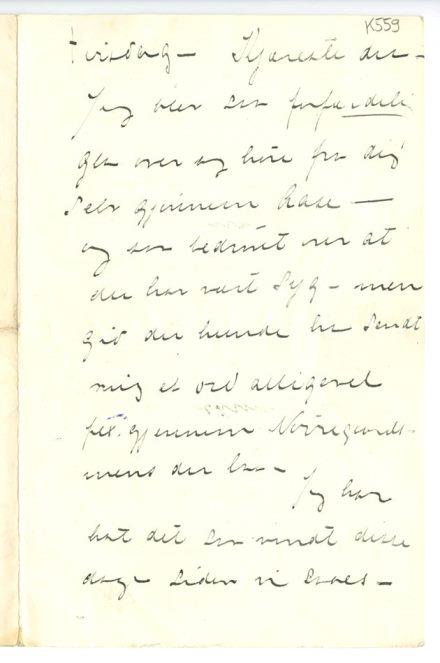 K559
Tirsdag – Kjæreste du –
Jeg blev saa forfærdelig
gla over og höre fra dig
selv gjennem Aase –
og saa bedrövet over at
du har vært syg – men
gid du kunde ha sendt
mig et ord alligevel
feks. gjennem Nörregaards –
mens du laa –
Jeg har
hat det saa vondt disse
dage siden vi saaes –